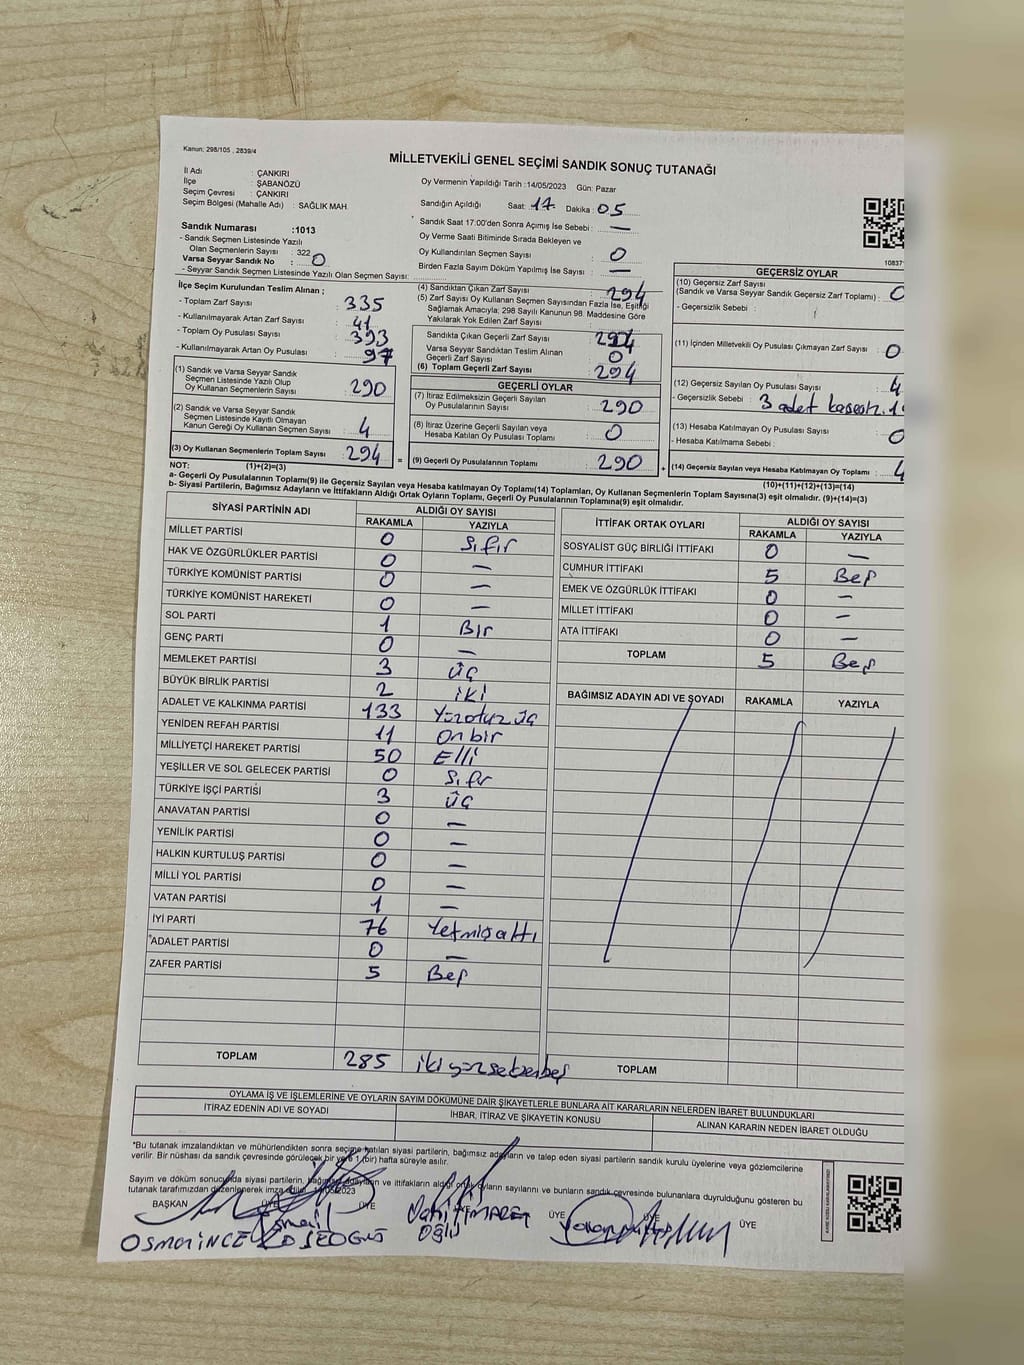 Kanun: 298/105 , 2839/4
MİLLETVEKİLİ GENEL SEÇİMİ SANDIK SONUÇ TUTANAĞI
İl Adı : ÇANKIRI
İlçe : ŞABANÖZÜ
Seçim Çevresi : ÇANKIRI
Seçim Bölgesi (Mahalle Adı) : SAĞLIK MAH.
Oy Vermenin Yapıldığı Tarih :14/05/2023 Gün: Pazar
Sandığın Açıldığı Saat: 17 Dakika: 05
Sandık Saat 17:00'den Sonra Açımış İse Sebebi : —
Oy Verme Saati Bitiminde Sırada Bekleyen ve
Oy Kullandırılan Seçmen Sayısı : 0
Birden Fazla Sayım Döküm Yapılmış İse Sayısı : —
Sandık Numarası :1013
- Sandık Seçmen Listesinde Yazılı
Olan Seçmenlerin Sayısı : 322
Varsa Seyyar Sandık No : 0
- Seyyar Sandık Seçmen Listesinde Yazılı Olan Seçmen Sayısı:
İlçe Seçim Kurulundan Teslim Alınan ;
- Toplam Zarf Sayısı : 335
- Kullanılmayarak Artan Zarf Sayısı : 41
- Toplam Oy Pusulası Sayısı : 393
- Kullanılmayarak Artan Oy Pusulası : 97
(1) Sandık ve Varsa Seyyar Sandık
Seçmen Listesinde Yazılı Olup
Oy Kullanan Seçmenlerin Sayısı : 290
(2) Sandık ve Varsa Seyyar Sandık
Seçmen Listesinde Kayıtlı Olmayan
Kanun Gereği Oy Kullanan Seçmen Sayısı : 4
(3) Oy Kullanan Seçmenlerin Toplam Sayısı : 294
(4) Sandıktan Çıkan Zarf Sayısı : 294
(5) Zarf Sayısı Oy Kullanan Seçmen Sayısından Fazla İse, Eşitliği
Sağlamak Amacıyla; 298 Sayılı Kanunun 98. Maddesine Göre
Yakılarak Yok Edilen Zarf Sayısı
Sandıkta Çıkan Geçerli Zarf Sayısı : 294
Varsa Seyyar Sandıktan Teslim Alınan
Geçerli Zarf Sayısı : 0
(6) Toplam Geçerli Zarf Sayısı : 294
GEÇERLİ OYLAR
(7) İtiraz Edilmeksizin Geçerli Sayılan
Oy Pusulalarının Sayısı : 290
(8) İtiraz Üzerine Geçerli Sayılan veya
Hesaba Katılan Oy Pusulası Toplamı : 0
= (9) Geçerli Oy Pusulalarının Toplamı : 290 +
10837
GEÇERSİZ OYLAR
(10) Geçersiz Zarf Sayısı
(Sandık ve Varsa Seyyar Sandık Geçersiz Zarf Toplamı) : 0
- Geçersizlik Sebebi :
(11) İçinden Milletvekili Oy Pusulası Çıkmayan Zarf Sayısı : 0
(12) Geçersiz Sayılan Oy Pusulası Sayısı : 4
- Geçersizlik Sebebi : 3 adet
(13) Hesaba Katılmayan Oy Pusulası Sayısı : 0
- Hesaba Katılmama Sebebi :
(14) Geçersiz Sayılan veya Hesaba Katılmayan Oy Toplamı : 4
NOT: (1)+(2)=(3)
(10)+(11)+(12)+(13)=(14)
a- Geçerli Oy Pusulalarının Toplamı(9) ile Geçersiz Sayılan veya Hesaba Katılmayan Oy Toplamı(14) Toplamları, Oy Kullanan Seçmenlerin Toplam Sayısına(3) eşit olmalıdır. (9)+(14)=(3)
b- Siyasi Partilerin, Bağımsız Adayların ve İttifakların Aldığı Ortak Oyların Toplamı, Geçerli Oy Pusulalarının Toplamına(9) eşit olmalıdır.
SİYASİ PARTİNİN ADI ALDIĞI OY SAYISI
RAKAMLA YAZIYLA
MİLLET PARTİSİ 0 Sıfır
HAK VE ÖZGÜRLÜKLER PARTİSİ 0 —
TÜRKİYE KOMÜNİST PARTİSİ 0 —
TÜRKİYE KOMÜNİST HAREKETİ 0 —
SOL PARTİ 1 Bir
GENÇ PARTİ 0 —
MEMLEKET PARTİSİ 3 üç
BÜYÜK BİRLİK PARTİSİ 2 iki
ADALET VE KALKINMA PARTİSİ 133 Yüzotuz üç
YENİDEN REFAH PARTİSİ 11 Onbir
MİLLİYETÇİ HAREKET PARTİSİ 50 Elli
YEŞİLLER VE SOL GELECEK PARTİSİ 0 Sıfır
TÜRKİYE İŞÇİ PARTİSİ 3 üç
ANAVATAN PARTİSİ 0 —
YENİLİK PARTİSİ 0 —
HALKIN KURTULUŞ PARTİSİ 0 —
MİLLİ YOL PARTİSİ 0 —
VATAN PARTİSİ 1 —
İYİ PARTİ 76 Yetmişaltı
ADALET PARTİSİ 0 —
ZAFER PARTİSİ 5 Beş
TOPLAM 285 ikiyüzseksenbeş
İTTİFAK ORTAK OYLARI ALDIĞI OY SAYISI
RAKAMLA YAZIYLA
SOSYALİST GÜÇ BİRLİĞİ İTTİFAKI 0 —
CUMHUR İTTİFAKI 5 Beş
EMEK VE ÖZGÜRLÜK İTTİFAKI 0 —
MİLLET İTTİFAKI 0 —
ATA İTTİFAKI 0 —
TOPLAM 5 Beş
BAĞIMSIZ ADAYIN ADI VE SOYADI RAKAMLA YAZIYLA
TOPLAM
OYLAMA İŞ VE İŞLEMLERİNE VE OYLARIN SAYIM DÖKÜMÜNE DAİR ŞİKAYETLERLE BUNLARA AİT KARARLARIN NELERDEN İBARET BULUNDUKLARI
İTİRAZ EDENİN ADI VE SOYADI İHBAR, İTİRAZ VE ŞİKAYETİN KONUSU ALINAN KARARIN NEDEN İBARET OLDUĞU
*Bu tutanak imzalandıktan ve mühürlendikten sonra seçime katılan siyasi partilerin, bağımsız adayların ve talep eden siyasi partilerin sandık kurulu üyelerine veya gözlemcilerine
verilir. Bir nüshası da sandık çevresinde görülecek bir yere 1 (bir) hafta süreyle asılır.
Sayım ve döküm sonucunda siyasi partilerin, bağımsız adayların ve ittifakların aldığı ortak oyların sayılarını ve bunların sandık çevresinde bulunanlara duyrulduğunu gösteren bu
tutanak tarafımızdan düzenlenerek imza edildi. 14/05/2023
BAŞKAN ÜYE ÜYE ÜYE ÜYE
OSMAN İNCE İsmail